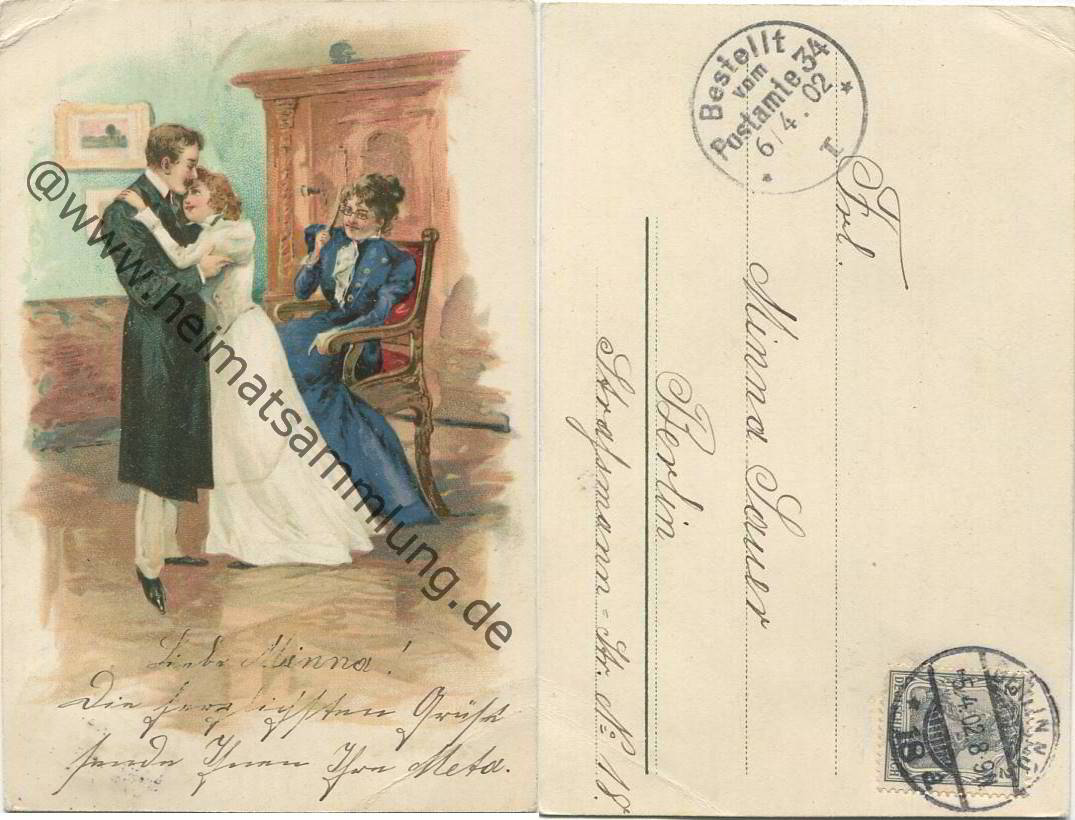 @www.heimatsammlung.de
Liebe Minna!
Die herzlichsten Grüße
sende Ihnen Ihre Meta.
Bestellt
vom
Postamte 34
6/4. 02
I
Frl.
Minna Sauer
Berlin
Straßmann-Str. No. 18.
5.4.02.8-9N.
* 18 a